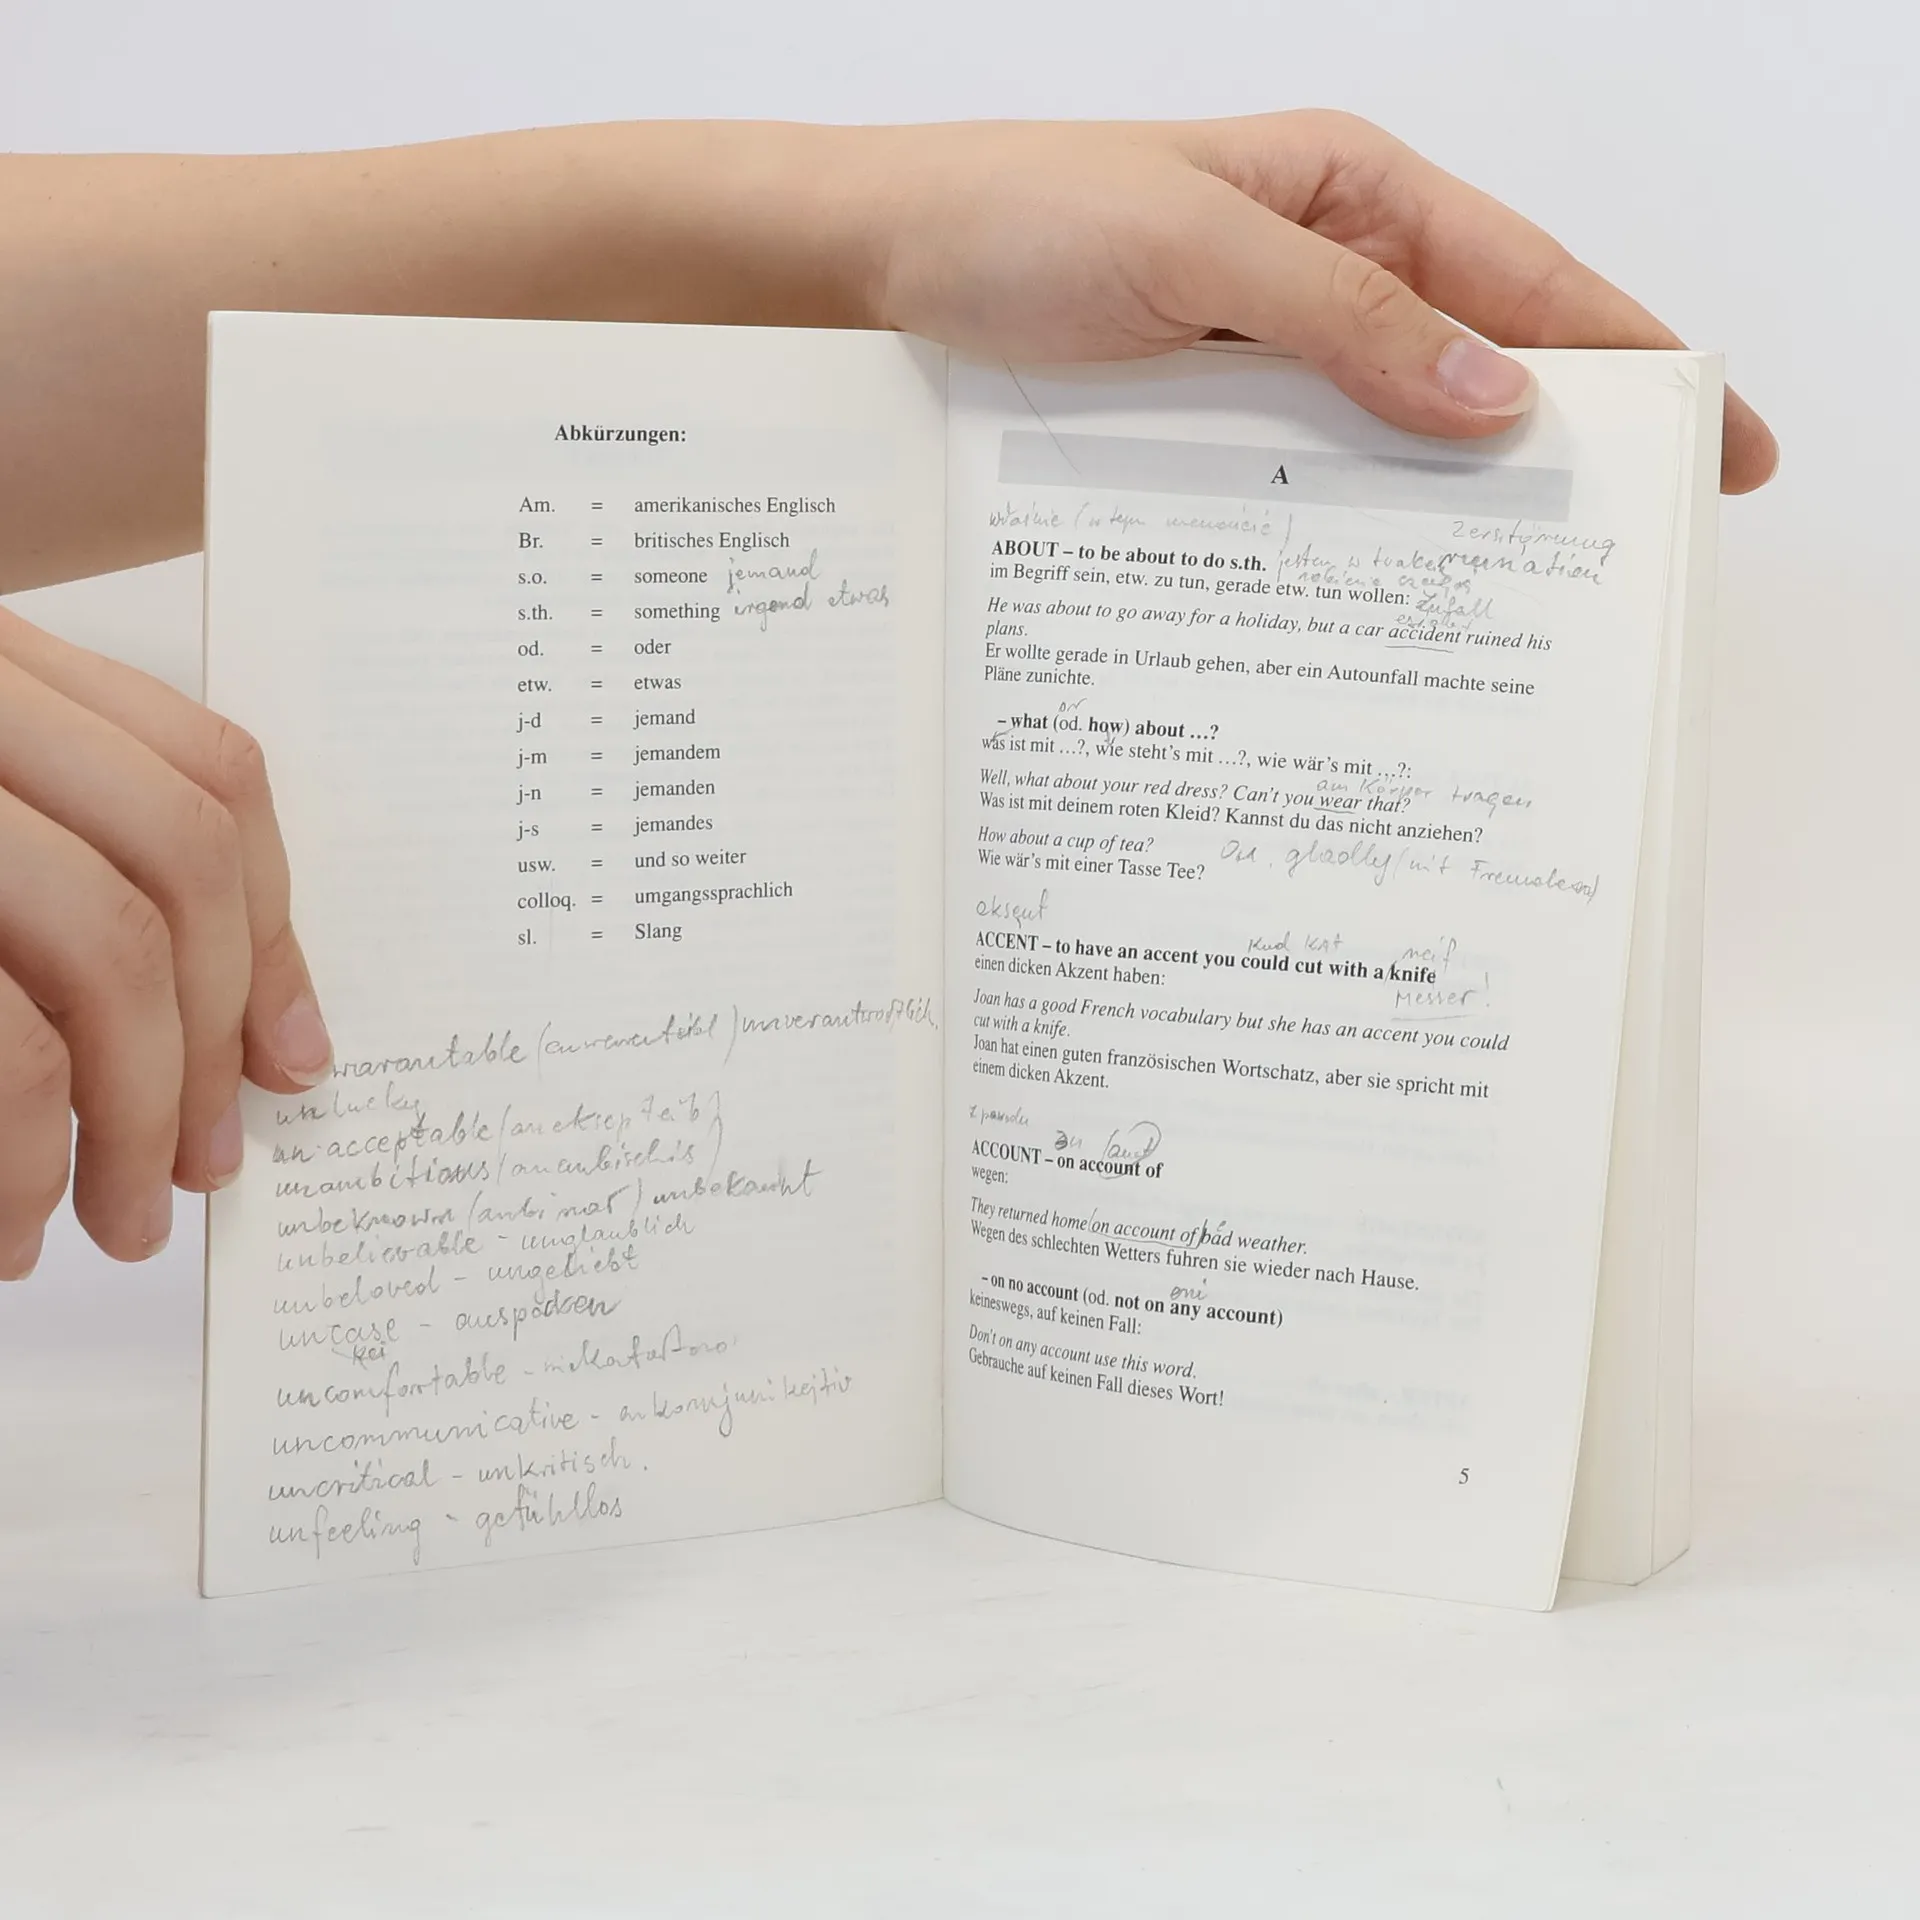 Abkürzungen:
Am. = amerikanisches Englisch
Br. = britisches Englisch
s.o. = someone jemand
s.th. = something irgend etwas
od. = oder
etw. = etwas
j-d = jemand
j-m = jemandem
j-n = jemanden
j-s = jemandes
usw. = und so weiter
colloq. = umgangssprachlich
sl. = Slang
unlucky
unacceptable
unambitious
unbeknown unbekannt
unbelievable - unglaublich
unbeloved - ungeliebt
uncase - auspacken
kei
uncomfortable
uncommunicative - ankomjunikejtiv
uncritical - unkritisch.
unfeeling - gefühllos
A
właśnie (w tym momencie)
Zerstörung
ABOUT – to be about to do s.th. jestem w
im Begriff sein, etw. zu tun, gerade etw. tun wollen:
Zufall
He was about to go away for a holiday, but a car accident ruined his
plans.
Er wollte gerade in Urlaub gehen, aber ein Autounfall machte seine
Pläne zunichte.
or
– what (od. how) about …?
was ist mit …?, wie steht's mit …?, wie wär's mit …?:
Well, what about your red dress? Can't you wear that?
am Körper tragen
Was ist mit deinem roten Kleid? Kannst du das nicht anziehen?
How about a cup of tea?
gladly (mit
Wie wär's mit einer Tasse Tee?
aksent
kud kat
ACCENT – to have an accent you could cut with a knife
einen dicken Akzent haben:
Messer!
Joan has a good French vocabulary but she has an accent you could
cut with a knife.
Joan hat einen guten französischen Wortschatz, aber sie spricht mit
einem dicken Akzent.
z powodu
ACCOUNT – on account of
wegen:
They returned home on account of bad weather.
Wegen des schlechten Wetters fuhren sie wieder nach Hause.
eni
– on no account (od. not on any account)
keineswegs, auf keinen Fall:
Don't on any account use this word.
Gebrauche auf keinen Fall dieses Wort!
5